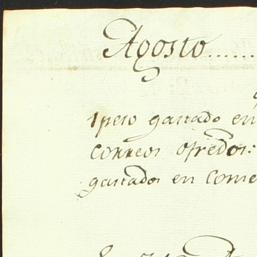 Agosto......
1 peso gastado en
correos ofredos:
gastados en come